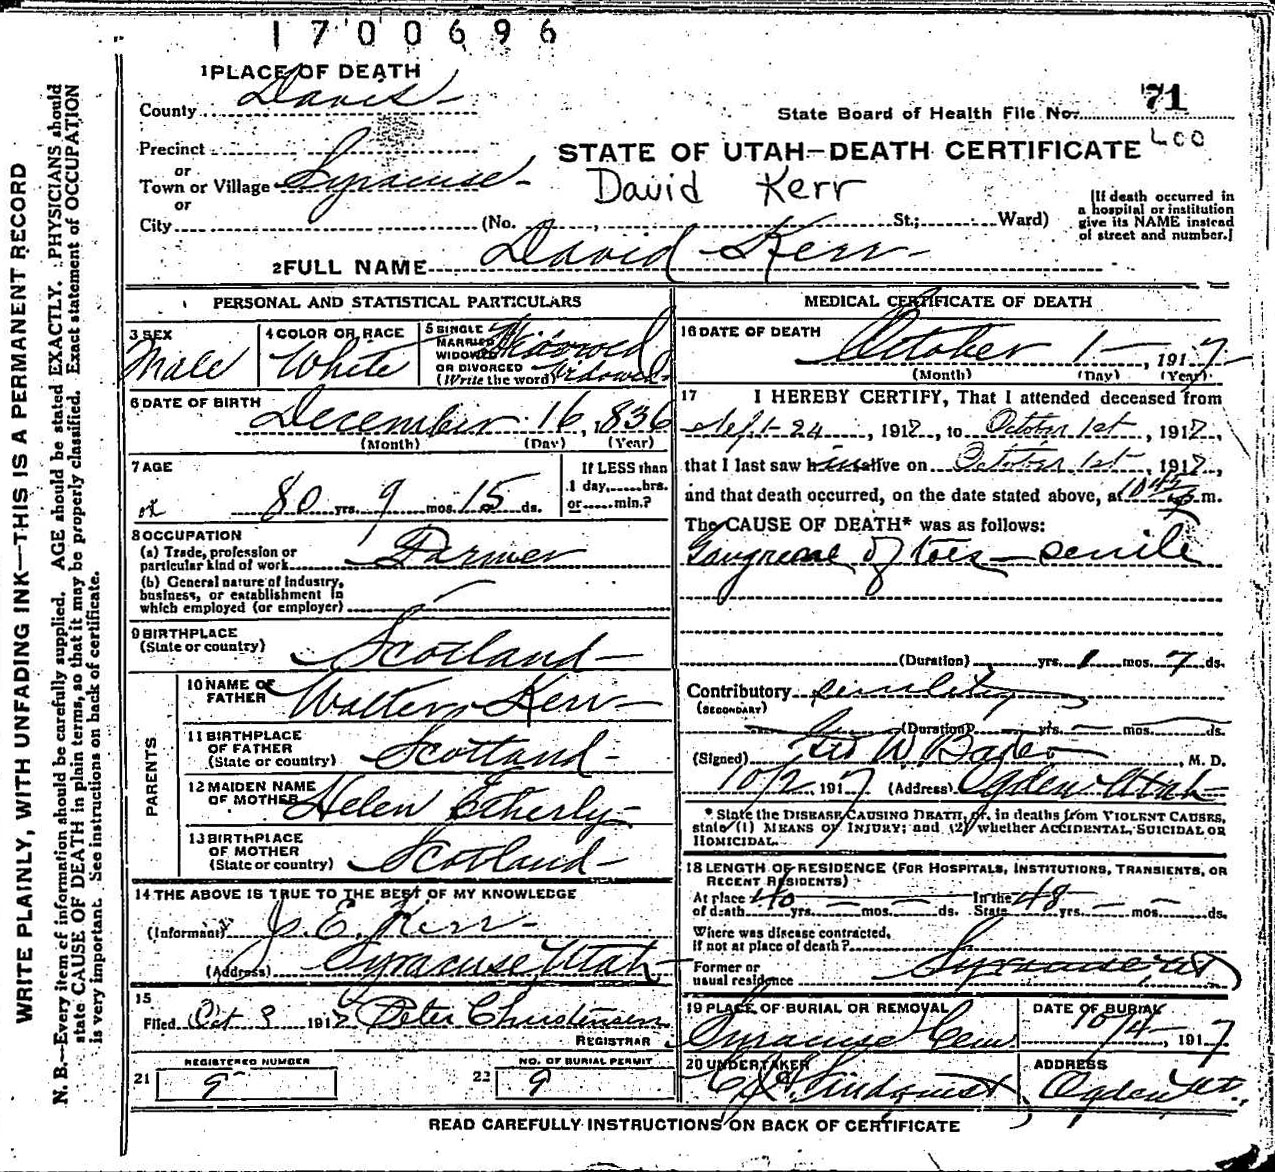 1700696
1 PLACE OF DEATH
County Davis
State Board of Health File No. 71
400
Precinct
or
Town or Village Syracuse
or
City
STATE OF UTAH—DEATH CERTIFICATE
David Kerr
(No. St.; Ward)
[If death occurred in
a hospital or institution
give its NAME instead
of street and number.]
2 FULL NAME David Kerr
PERSONAL AND STATISTICAL PARTICULARS
3 SEX
Male
4 COLOR OR RACE
White
5 SINGLE
MARRIED
WIDOWED
OR DIVORCED
(Write the word)
Widowed
Widowed
6 DATE OF BIRTH
December 16, 1836
(Month) (Day) (Year)
7 AGE
80 yrs. 9 mos. 15 ds.
If LESS than
1 day, hrs.
or min.?
8 OCCUPATION
(a) Trade, profession or
particular kind of work Farmer
(b) General nature of industry,
business, or establishment in
which employed (or employer)
9 BIRTHPLACE
(State or country) Scotland
PARENTS
10 NAME OF
FATHER Walter Kerr
11 BIRTHPLACE
OF FATHER
(State or country) Scotland
12 MAIDEN NAME
OF MOTHER Helen Etherly
13 BIRTHPLACE
OF MOTHER
(State or country) Scotland
14 THE ABOVE IS TRUE TO THE BEST OF MY KNOWLEDGE
(Informant) J. E. Kerr
(Address) Syracuse Utah
15
Filed Oct 9 1917 Peter Christensen
REGISTRAR
REGISTERED NUMBER
21 9
NO. OF BURIAL PERMIT
22 9
MEDICAL CERTIFICATE OF DEATH
16 DATE OF DEATH
October 1, 1917
(Month) (Day) (Year)
17 I HEREBY CERTIFY, That I attended deceased from
Sept 24, 1917, to October 1st, 1917,
that I last saw him alive on October 1st, 1917,
and that death occurred, on the date stated above, at 10 45 m.
The CAUSE OF DEATH* was as follows:
Gangrene of toes — senile
(Duration) yrs. 1 mos. 7 ds.
Contributory senility
(SECONDARY)
(Duration) yrs. mos. ds.
(Signed) Geo W. Baker, M. D.
10/2 1917 (Address) Ogden Utah
* State the DISEASE CAUSING DEATH, or, in deaths from VIOLENT CAUSES,
state (1) MEANS OF INJURY; and (2) whether ACCIDENTAL, SUICIDAL OR
HOMICIDAL.
18 LENGTH OF RESIDENCE (FOR HOSPITALS, INSTITUTIONS, TRANSIENTS, OR
RECENT RESIDENTS)
At place
of death 40 yrs. mos. ds. In the
State 48 yrs. mos. ds.
Where was disease contracted,
if not at place of death?
Former or
usual residence Syracuse Ut
19 PLACE OF BURIAL OR REMOVAL
Syracuse Cem
DATE OF BURIAL
10/4, 1917
20 UNDERTAKER
Lindquist
ADDRESS
Ogden Ut.
READ CAREFULLY INSTRUCTIONS ON BACK OF CERTIFICATE
WRITE PLAINLY, WITH UNFADING INK—THIS IS A PERMANENT RECORD
N. B.—Every item of information should be carefully supplied. AGE should be stated EXACTLY. PHYSICIANS should
state CAUSE OF DEATH in plain terms, so that it may be properly classified. Exact statement of OCCUPATION
is very important. See instructions on back of certificate.